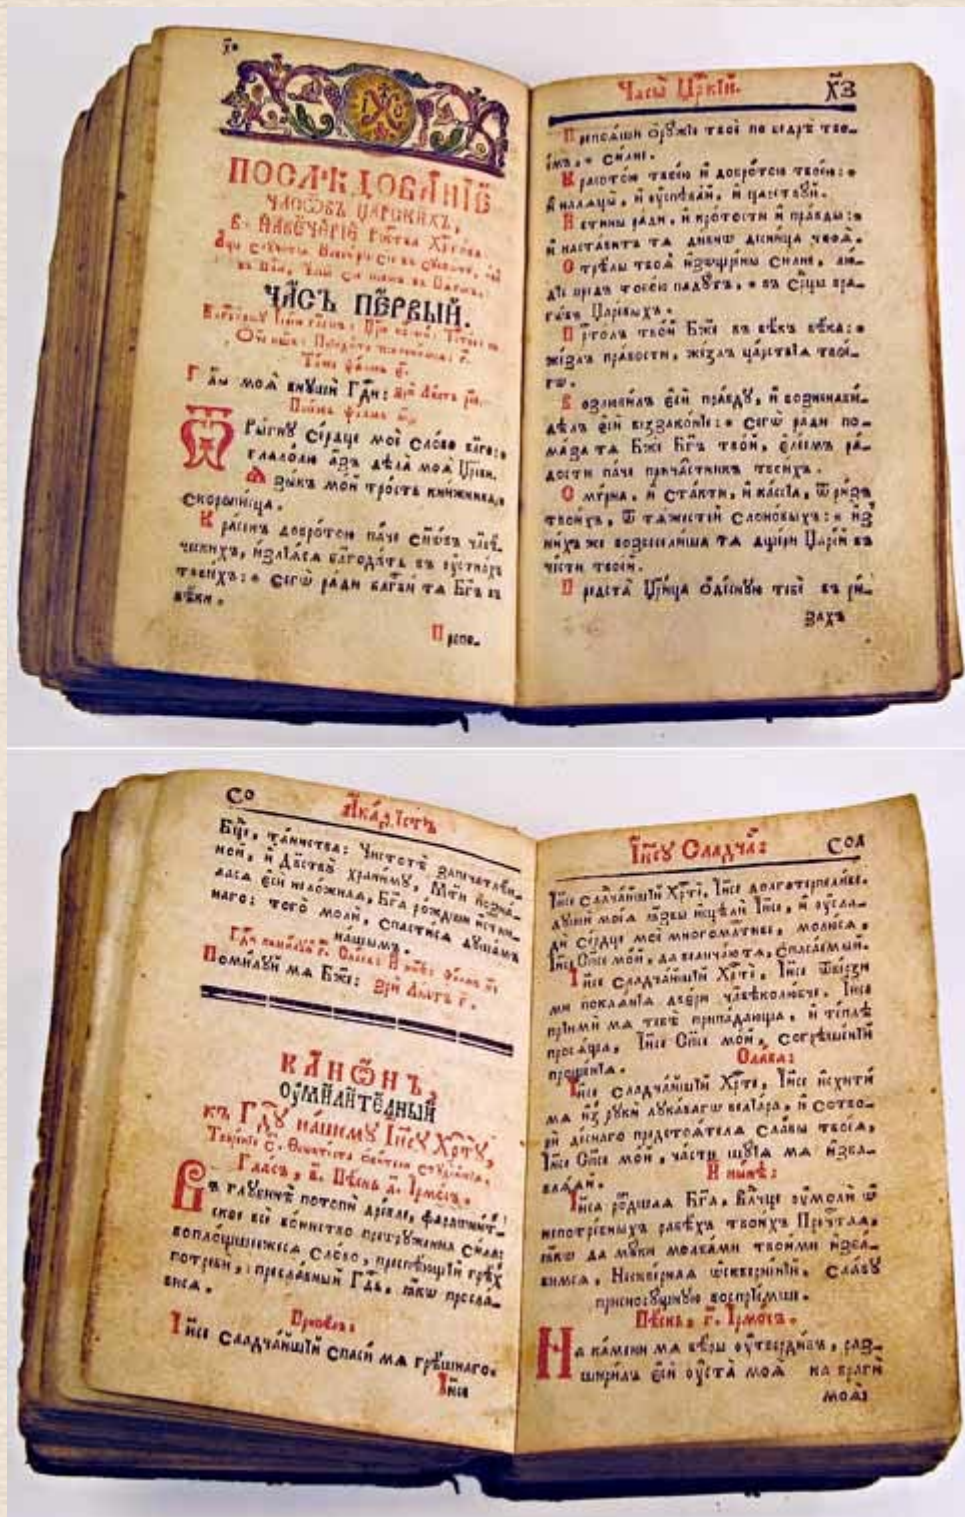 ПОСЛѢДОВАНЇЕ
ЧАСѠВЪ ЦАРСКИХЪ,
ЧАСЪ ПЕРВЫЙ.
Г лы моѧ̀ внꙋшѝ Гдⷭ҇и: Зрѝ Листъ
Ѿ рыгнꙋ̀ се́рдце моѐ сло́во бл҃го:
глаго́лю а҆́зъ дѣла̀ моѧ̀ Цр҃еви.
Ѧ҆ зы́къ мо́й тро́сть кни́жника,
скоропи́сца.
К ра́сенъ добро́тою па́че сн҃ѡ́въ чл҃вѣ́-
ческихъ, и҆злїѧ́сѧ бл҃года́ть въ ᲂу҆стна́хъ
твои́хъ: сегѡ̀ ра́ди бл҃гвѝ тѧ̀ Бг҃ъ въ
вѣ́ки.
П репо-
Часы̀ Цр҃кїи.
Х҃З
П репоѧ́ши ѻ҆рꙋ́жїе твоѐ по бедрѣ̀ тво-
е҆́мъ, си́лне.
К расото́ю твое́ю и҆ добро́тою твое́ю:
и҆ налѧцы̀, и҆ ᲂу҆спѣва́й, и҆ ца́рствꙋй.
И҆́ стины ра́ди, и҆ кро́тости и҆ пра́вды:
и҆ наста́витъ тѧ̀ ди́внѡ десни́ца твоѧ̀.
С трѣ́лы твоѧ̀ и҆з̾ѡщре́ны си́лне, лю́-
дїе под̾ тобо́ю падꙋ́тъ, въ се́рцы вра-
гѡ́въ Царе́выхъ.
П рⷭ҇то́лъ тво́й Бж҃е въ вѣ́къ вѣ́ка:
же́злъ пра́вости, же́злъ ца́рствїѧ твоε-
гѡ̀.
В озлюби́лъ є҆сѝ пра́вдꙋ, и҆ возненави́-
дѣлъ є҆сѝ беззако́нїе: сегѡ̀ ра́ди по-
ма́за тѧ̀ Бж҃е Бг҃ъ тво́й, є҆ле́емъ ра́-
дости па́че прича́стникъ твои́хъ.
С мѵ́рна, и҆ ста́кти, и҆ ка́ссїа, ѿ ри́зъ
твои́хъ, ѿ тѧ́жестей слоно́выхъ: и҆з̾
ни́хъ же возвесели́ша тѧ̀ дще́ри Царе́й въ
че́сти твое́й.
П редста̀ Цр҃и́ца ѡ҆деснꙋ́ю тебѐ въ ри́-
захъ
СО
А҆ка́ѳїстъ
Бц҃е, та́инства: Чистотѣ̀ запеча́тлѣн-
ной, и҆ дв҃ствꙋ храни́мꙋ, Мт҃и позна́-
ласѧ є҆сѝ нело́жнаѧ, Бг҃а ро́ждши и҆́стин-
наго: того̀ молѝ, спасти́сѧ дꙋша́мъ
на́шымъ.
Поми́лꙋй мѧ̀ Бж҃е: Зрѝ Ли́стъ г҃.
КАНѠ́НЪ,
ᲂу҆мили́телный
къ Гдⷭ҇ꙋ на́шемꙋ І҆и҃сꙋ Хрⷭ҇тꙋ̀,
Гла́съ, в҃. Пѣ́снь а҃. І҆рмо́съ.
В ъ глꙋбинѣ̀ потопѝ дре́вле, фараѡни́т-
ское всѐ во́инство преѡрꙋже́ннаѧ си́ла:
воплоще́ншеесѧ сло́во, преспѣ́ющїй грѣ́хъ
потребѝ, пресла́вный Гдⷭ҇ь, ꙗ҆́кѡ просла́-
висѧ.
Припѣ́лъ:
І҆и҃се сладча́йшїй спасѝ мѧ̀ грѣ́шнаго.
І҆и҃се
І҆и҃сꙋ Сладча́:
СОА
І҆и҃се сладча́йшїй Хрⷭ҇тѐ, І҆и҃се долготерпели́ве.
дꙋшѝ моеѧ̀ ꙗ҆́звы и҆сцѣлѝ І҆и҃се, и҆ ᲂу҆сла-
дѝ се́рдце моѐ многомлⷭ҇тиве, молю́сѧ,
І҆и҃се Сп҃се мо́й, да велича́ю тѧ̀, спаса́емый.
І҆и҃се сладча́йшїй Хрⷭ҇тѐ, І҆и҃се ѿве́рзи
мѝ покаѧ́нїѧ две́ри чл҃вѣколю́бче, І҆и҃се
прїимѝ мѧ̀ тебѣ̀ припа́дающа, и҆ те́плѣ
просѧ́ща, І҆и҃се Сп҃се мо́й, согрѣше́нїй
проще́нїѧ.
Сла́ва:
І҆и҃се сладча́йшїй Хрⷭ҇тѐ, І҆и҃се и҆схитѝ
мѧ̀ и҆з̾ рꙋкѝ лꙋка́вагѡ велїа́ра, и҆ сотво-
рѝ десна́го предстоѧ́телѧ сла́вы твоеѧ̀,
І҆и҃се Сп҃се мо́й, ча́сти шꙋ́їѧ мѧ̀ и҆зба-
влѧ́ѧй.
И҆ ны́нѣ:
І҆и҃са ро́ждшаѧ Бг҃а, влⷣчце ᲂу҆молѝ ѡ҆
непотре́бныхъ рабѣ́хъ твои́хъ Преч҃таѧ,
ꙗ҆́кѡ да мꙋ́ки моли́твами твои́ми и҆зба́-
вимсѧ, Нескве́рнаѧ ѡ҆скверне́нїи, сла́вꙋ
присносꙋ́щнꙋю воспрїе́мше.
Пѣ́снь. г҃. І҆рмо́съ.
Н а ка́мени мѧ̀ вѣ́ры ᲂу҆тверди́въ, раз-
шири́лъ є҆сѝ ᲂу҆ста̀ моѧ̀ на врагѝ
моѧ̀: